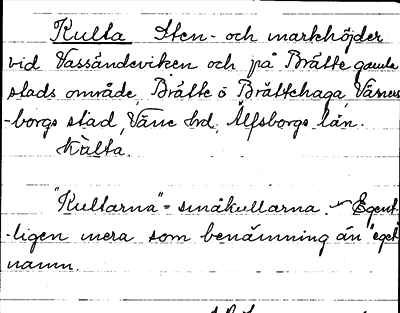 Kulta Sten- och markhöjder
vid Vassändeviken och på Brätte gamla
stads område, Brätte o Brättehaga, Väners
-borgs stad, Väne hrd, Älfsborgs län.
Kulta.
"Kultarna" = småkullarna. - Egent
-ligen mera som benämning än eget
namn.